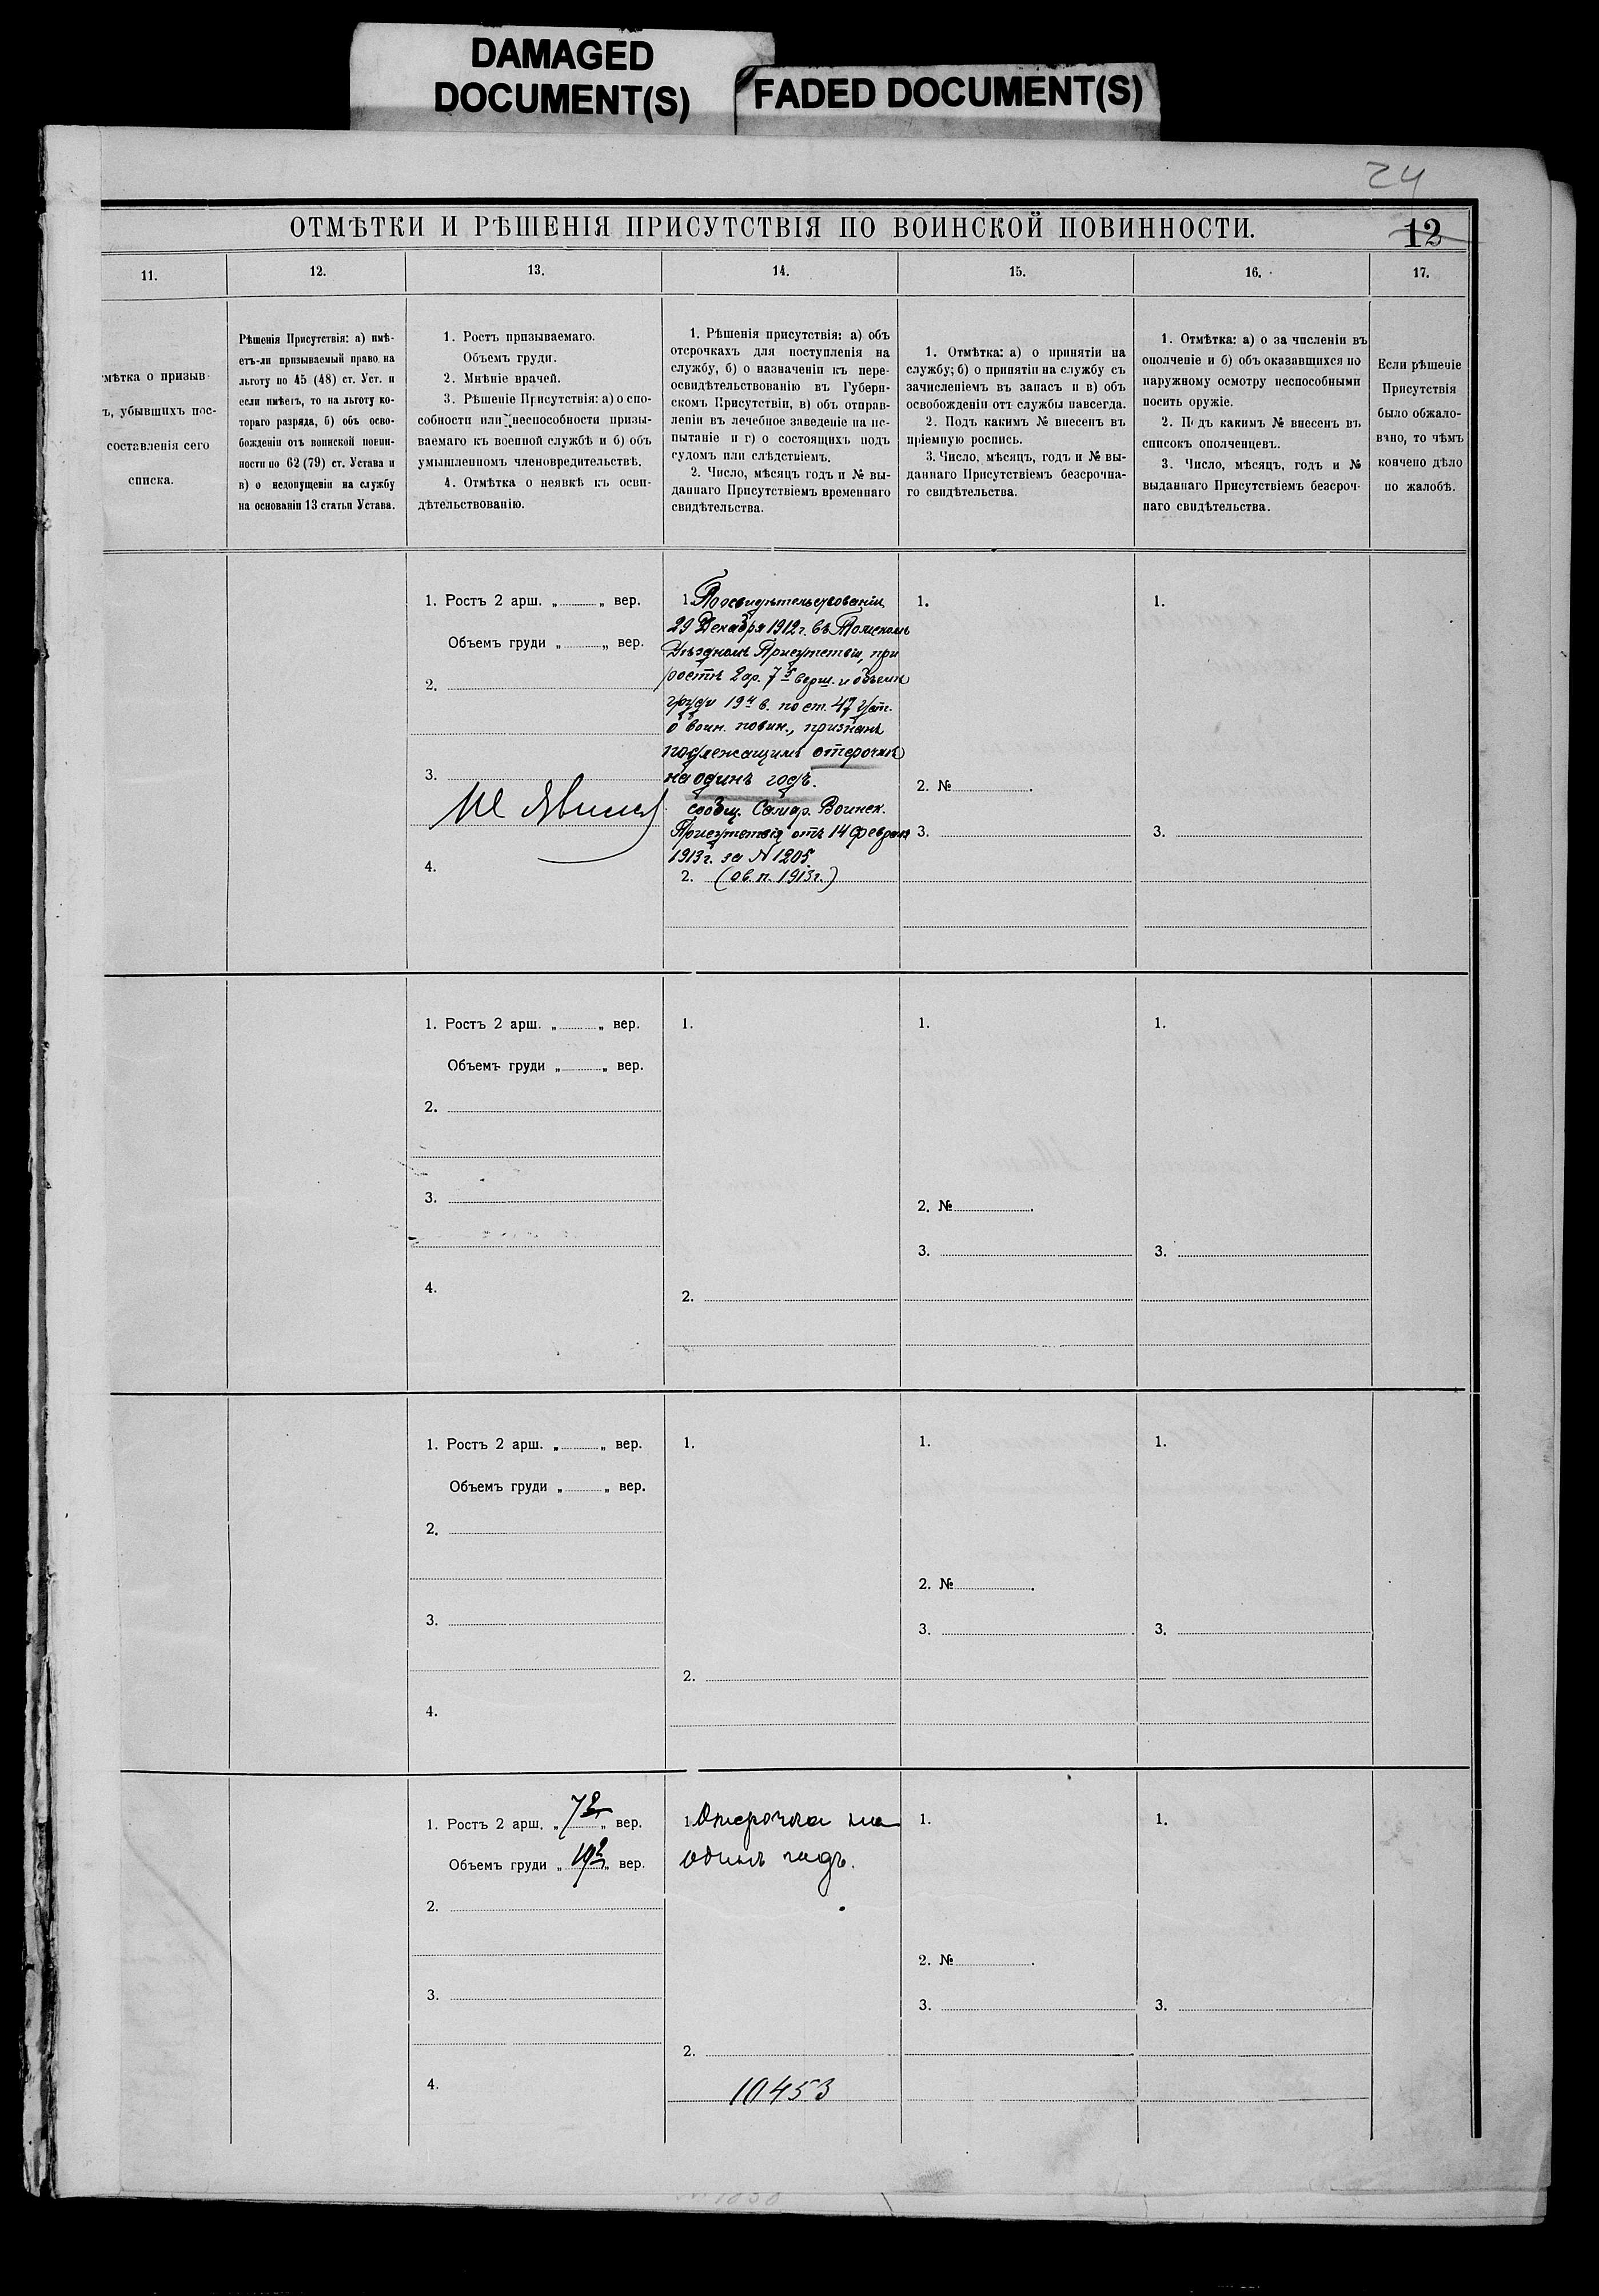 DAMAGED
DOCUMENT(S)
FADED DOCUMENT(S)
24
ОТМѢТКИ И РѢШЕНІЯ ПРИСУТСТВІЯ ПО ВОИНСКОЙ ПОВИННОСТИ.
12
11.
12.
13.
14.
15.
16.
17.
мѣтка о призыв-
ъ, убывшихъ пос-
составленія сего
списка.
Рѣшенія Присутствія: а) имѣ-
етъ-ли призываемый право на
льготу по 45 (48) ст. Уст. и
если имѣетъ, то на льготу ко-
тораго разряда, б) объ осво-
божденіи отъ воинской повин-
ности по 62 (79) ст. Устава и
в) о недопущеніи на службу
на основаніи 13 статьи Устава.
1. Ростъ призываемаго.
Объемъ груди.
2. Мнѣніе врачей.
3. Рѣшеніе Присутствія: а) о спо-
собности или неспособности призы-
ваемаго къ военной службѣ и б) объ
умышленномъ членовредительствѣ.
4. Отмѣтка о неявкѣ къ осви-
дѣтельствованію.
1. Рѣшенія присутствія: а) объ
отсрочкахъ для поступленія на
службу, б) о назначеніи къ пере-
освидѣтельствованію въ Губерн-
скомъ Присутствіи, в) объ отправ-
леніи въ лечебное заведеніе на ис-
пытаніе и г) о состоящихъ подъ
судомъ или слѣдствіемъ.
2. Число, мѣсяцъ годъ и № вы-
даннаго Присутствіемъ временнаго
свидѣтельства.
1. Отмѣтка: а) о принятіи на
службу; б) о принятіи на службу съ
зачисленіемъ въ запасъ и в) объ
освобожденіи отъ службы навсегда.
2. Подъ какимъ № внесенъ въ
пріемную роспись.
3. Число, мѣсяцъ, годъ и № вы-
даннаго Присутствіемъ безсрочна-
го свидѣтельства.
1. Отмѣтка: а) о за численіи въ
ополченіе и б) объ оказавшихся по
наружному осмотру неспособными
носить оружіе.
2. Подъ какимъ № внесенъ въ
списокъ ополченцевъ.
3. Число, мѣсяцъ, годъ и №
выданнаго Присутствіемъ безсроч-
наго свидѣтельства.
Если рѣшеніе
Присутствія
было обжало-
вано, то чѣмъ
кончено дѣло
по жалобѣ.
1. Ростъ 2 арш. „ „ вер.
Объемъ груди „ „ вер.
2.
3.
Не явился
4.
1. По освидѣтельствованіи
29 Декабря 1912 г. въ Томскомъ
Уѣздномъ Присутствіи, при
ростѣ 2 ар. 7 верш. и объемѣ
груди 19 в. по ст. 47 Уст.
о воин. повин., признанъ
подлежащимъ отсрочкѣ
на одинъ годъ.
сообщ. Самар. Воинск.
Присутствія отъ 14 февраля
1913 г. за № 1205.
2. (ов. п. 1913 г.)
1.
2. №
3.
1.
3.
1. Ростъ 2 арш. „ „ вер.
Объемъ груди „ „ вер.
2.
3.
4.
1.
2.
1.
2. №
3.
1.
3.
1. Ростъ 2 арш. „ „ вер.
Объемъ груди „ „ вер.
2.
3.
4.
1.
2.
1.
2. №
3.
1.
3.
1. Ростъ 2 арш. „ 7 „ вер.
Объемъ груди „ 19 „ вер.
2.
3.
4.
1. Отсрочка на
одинъ годъ.
2.
10453
1.
2. №
3.
1.
3.